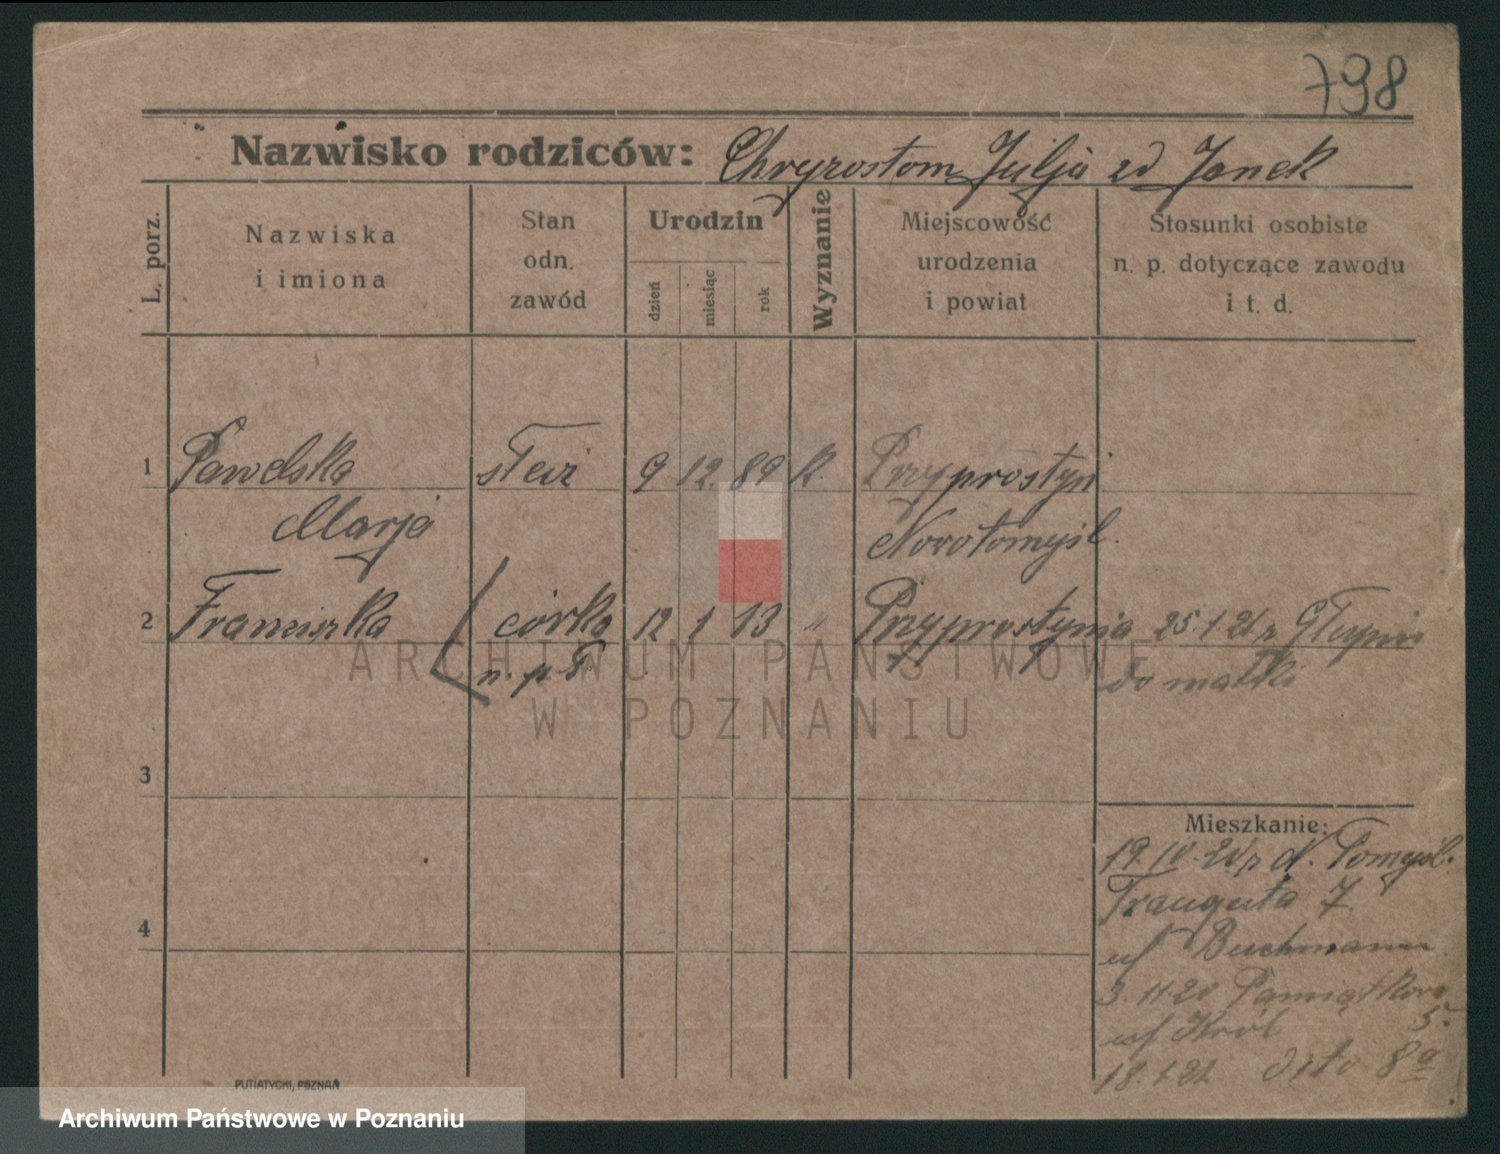 798
Nazwisko rodziców: Chryzostom Julja zd Janek
L. porz.
Nazwiska
i imiona
Stan
odn.
zawód
Urodzin
dzień
miesiąc
rok
Wyznanie
Miejscowość
urodzenia
i powiat
Stosunki osobiste
n. p. dotyczące zawodu
i t. d.
1 Pawelska 9 12. 89 k. Przyprostyń
Marja Nowotomyśl.
2 Franciszka córka 12 1 13 " Przyprostynia 25.1.21 z
n. p. do matki
ARCHIWUM PAŃSTWOWE
W POZNANIU
3
Mieszkanie:
19.10.20 z N. Tomyśl.
Traugutta 7.
4
u/ Buchmann
3.11.20 Pamiątkowa
5.
u/ Król
18.1.21 dito 8a
PUTIATYCKI, POZNAŃ
Archiwum Państwowe w Poznaniu